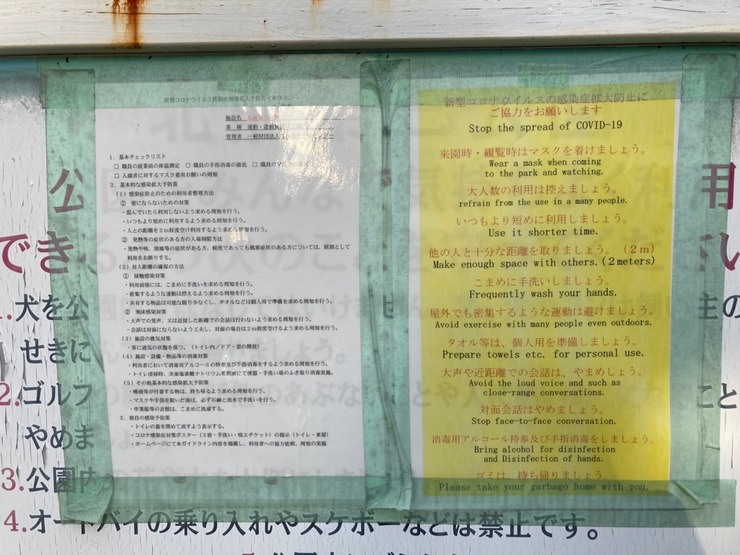 新型コロナウイルス感染症感染拡大予防ガイドライン
施設名
業 種 運動・遊戯施設
管理者 一般財団法人
1. 基本チェックリスト
□ 職員の就業前の体温測定 □ 職員の手指消毒の徹底 □ 職員のマスク
□ 入園者に対するマスク着用お願いの周知
2. 基本的な感染拡大予防策
(1) 感染症防止のための利用者整理方法
① 密にならないための対策
・混んでいたら利用しないよう求める周知を行う。
・いつもより短めに利用するよう求める周知を行う。
・人との距離を2m程度空け利用するよう求める周知を行う。
② 発熱等の症状のある方の入場制限方法
・発熱や咳、咽頭等の症状がある方、軽度であっても風邪症状のある方については、原則として
利用をお断りする。
(2) 対人距離の確保の方法
① 接触感染対策
・利用前後には、こまめに手洗いを求める周知を行う。
・密集するような運動は控えるよう求める周知を行う。
・共有する物品は可能な限り少なくし、タオルなどは個人用で準備を求める周知を行う。
② 飛沫感染対策
・大声での発声、又は近接した距離での会話は行わないよう求める周知を行う。
・会話は対面にならないよう工夫し、対面の場合は2m程度空けるよう求める周知を行う。
(3) 施設の換気対策
・常に通気の状態を保つ。(トイレ内/ドア・窓の開閉)
(4) 施設・設備・物品等の消毒対策
・利用者において消毒用アルコールの持参及び手指消毒をするよう求める周知を行う。
・トイレ清掃時、次亜塩素酸ナトリウム希釈液にて便器・手洗い場のふき取り消毒実施。
(5) その他基本的な感染拡大予防策
・唾液等が付着する物は、持ち帰るよう求める周知を行う。
・マスクや手袋を脱いだ後は、必ず石鹸と流水で手洗いを行う。
・作業服等の衣類は、こまめに洗濯する。
3. 独自の感染予防策
・トイレの蓋を閉めて流すよう表示する。
・コロナ感染症対策ポスター(3密・手洗い・咳エチケット)の掲示(トイレ・東屋)
・ホームページにて本ガイドライン内容を掲載し、利用者への協力依頼、周知の実施
新型コロナウイルスの感染症拡大防止に
ご協力をお願いします
Stop the spread of COVID-19
来園時・観覧時はマスクを着けましょう。
Wear a mask when coming
to the park and watching.
大人数の利用は控えましょう。
refrain from the use in a many people.
いつもより短めに利用しましょう。
Use it shorter time.
他の人と十分な距離を取りましょう。(2m)
Make enough space with others.(2meters)
こまめに手洗いしましょう。
Frequently wash your hands.
屋外でも密集するような運動は避けましょう。
Avoid exercise with many people even outdoors.
タオル等は、個人用を準備しましょう。
Prepare towels etc. for personal use.
大声や近距離での会話は、やまめしょう。
Avoid the loud voice and such as
close-range conversations.
対面会話はやめましょう。
Stop face-to-face conversation.
消毒用アルコール持参及び手指消毒をしましょう。
Bring alcohol for disinfection
and Disinfection of hands.
ゴミは、持ち帰りましょう
Please take your garbago home with you.
公
用
でき
い
1.犬を公
せ
主の
せきに
2.ゴルフ
こと
やめま
3.公園内
4.オートバイの乗り入れやスケボーなどは禁止です。